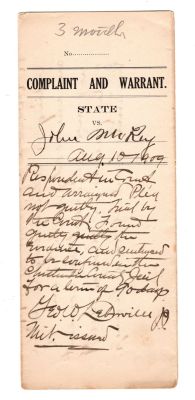 3 month
No.
COMPLAINT AND WARRANT.
STATE
VS.
John McKey
Aug. 10 / 1909
Respondent in Court
and arraigned Plead
not guilty, tried by
the Court, found
guilty
and sentenced
to be confined in the
County Jail
for a term of 90 days
Geo. D.
Mit. issued